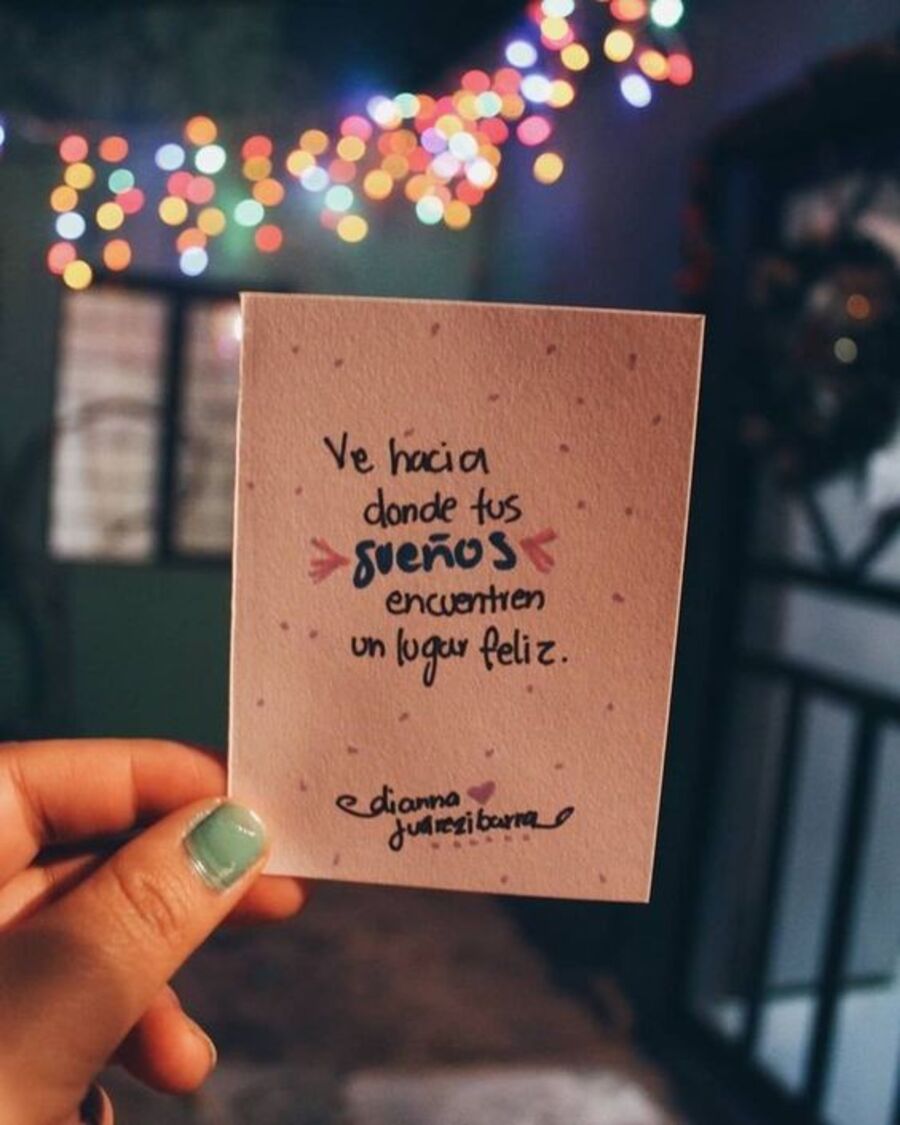 Ve hacia
donde tus
sueños
encuentren
un lugar feliz.
dianna
juarezibarra